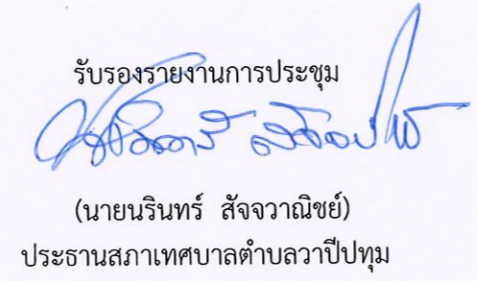 รับรองรายงานการประชุม
(นายนรินทร์ สัจจวาณิชย์)
ประธานสภาเทศบาลตำบลวาปีปทุม